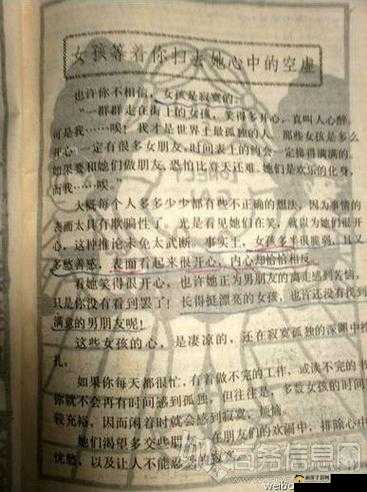 女孩等着你扫去她心中的空虚
也许你不相信，女孩是寂寞的。
“一群群走在街上的女孩，笑得多开心，真叫人心醉，
可是我……唉！我才是世界上最孤独的人。那些女孩是多么
开心，一定有很多女朋友，时间表上的约会一定排得满满的。
如果要和她们做朋友，恐怕比登天还难。她们是欢乐的化身，
而我……唉！
大概每个人多多少少都有些不正确的想法，因为事情的
表面太具有欺骗性了。光是看见她们在笑，就以为她们很开
心，这种推论未免太武断。事实上，女孩多半很脆弱，且又
多愁善感，表面看起来很开心，内心却恰恰相反。
看她笑得很开心，也许她正为男朋友的离走感到苦恼，
只是你没有看到罢了！长得挺漂亮的女孩，也许还没有找到
满意的男朋友呢！
这些女孩的心，是凄凉的，还在寂寞孤独的深渊中挣
扎。
如果你每天都很忙，有着做不完的工作，或读不完的书
你就不会再有时间感到孤独，但往往是，多数女孩的时间
较充裕，因而闲着时就会感到寂寞、烦恼。
她们渴望多交些朋友，在朋友们的欢闹中，排除心中
忧愁，以及让人不能忍受的寂寞。